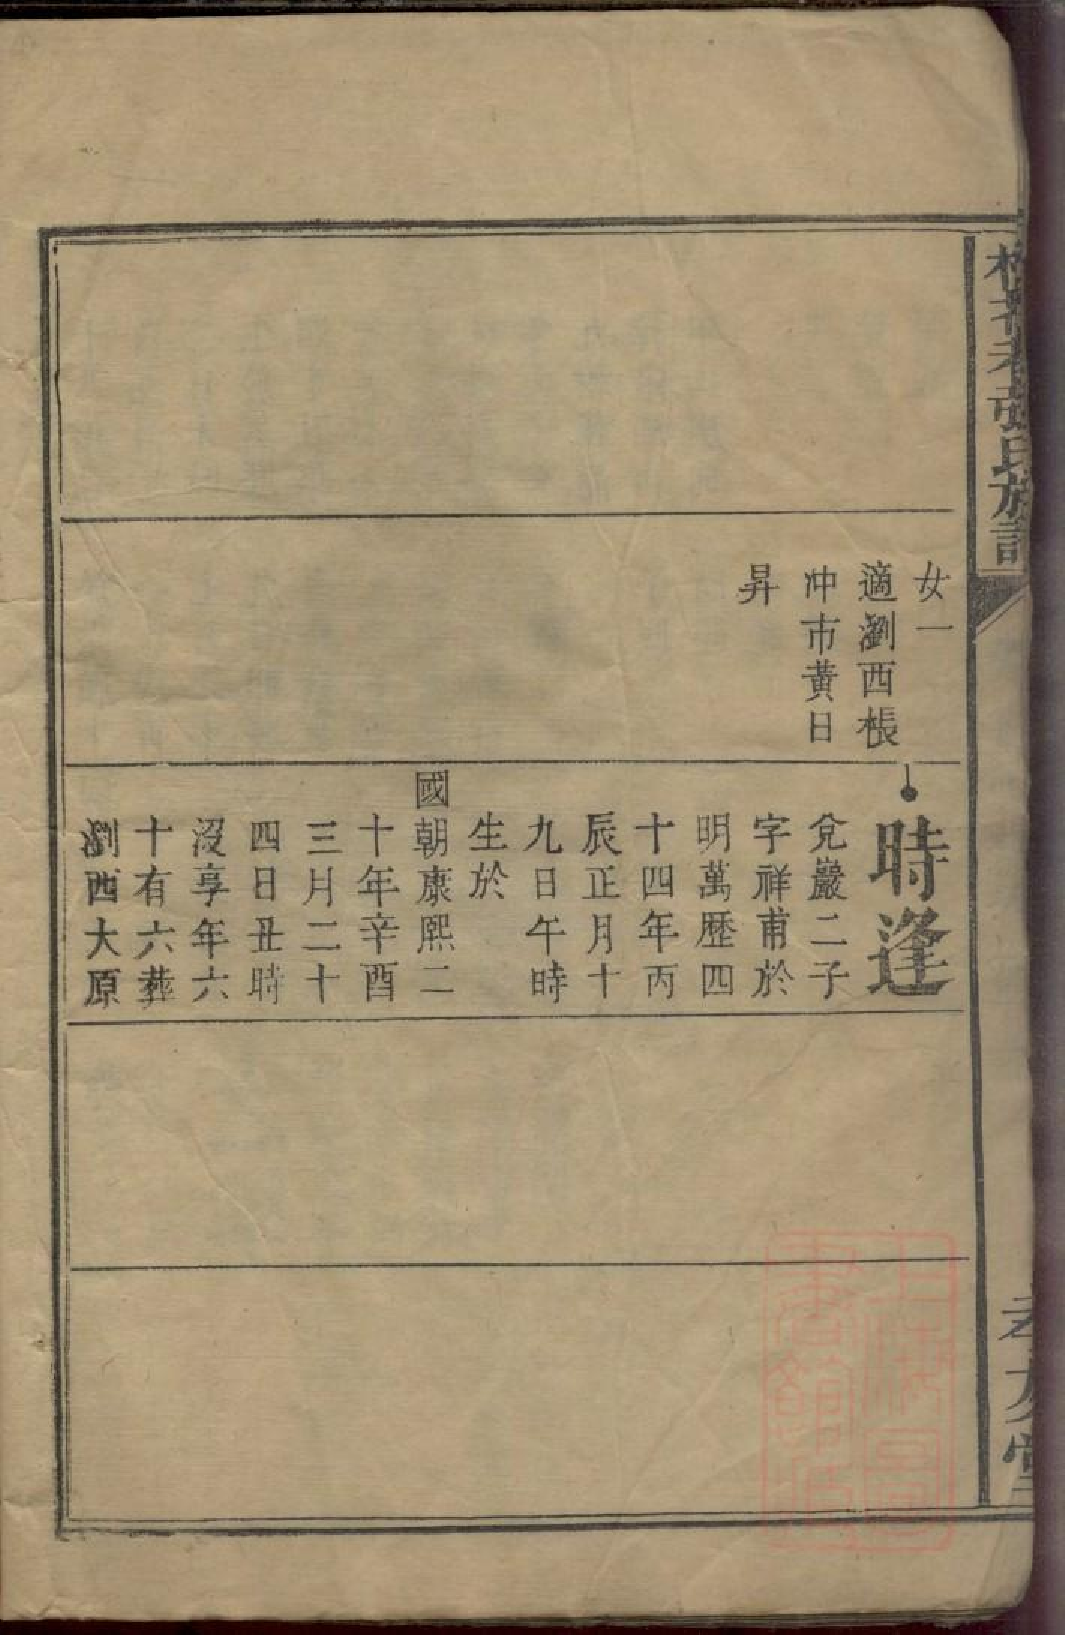 張氏族譜
孝友堂
女一
適瀏西棖
冲市黃日
昇
時逢
兊巖二子
字祥甫於
明萬歷四
十四年丙
辰正月十
九日午時
生於
國朝康熙二
十年辛酉
三月二十
四日丑時
沒享年六
十有六葬
瀏西大原
上海圖書館藏